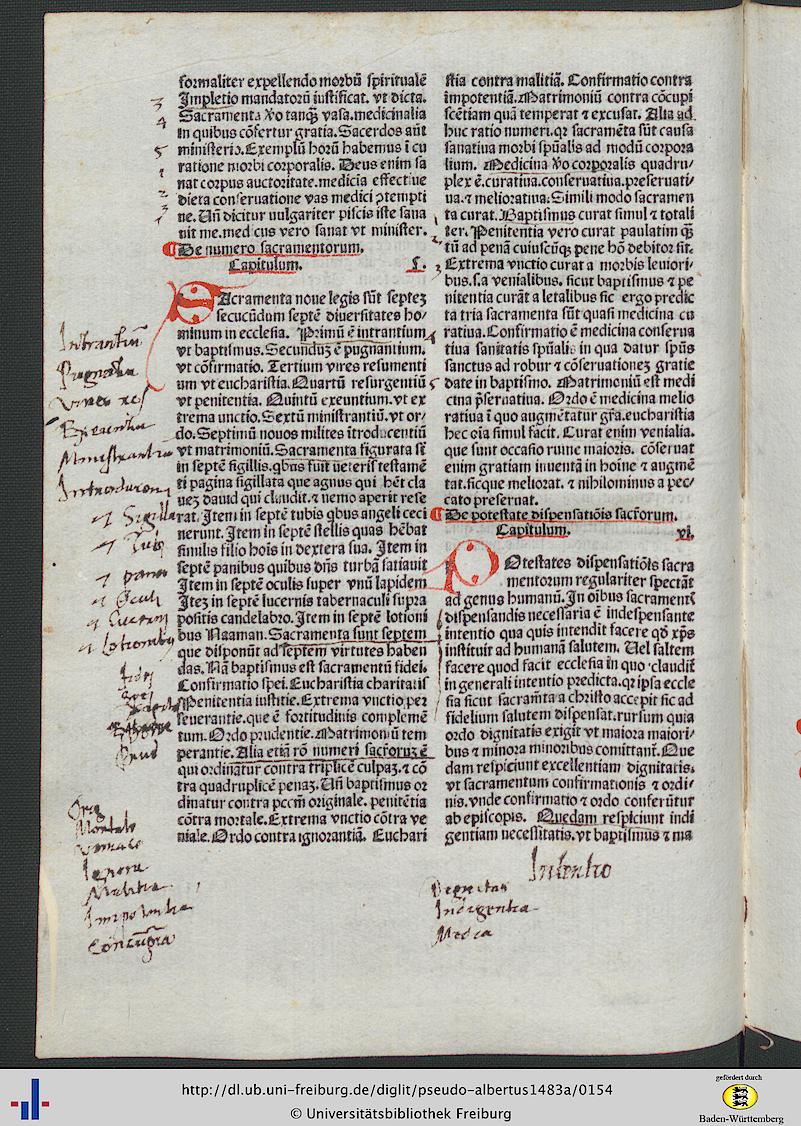 formaliter expellendo morbū spiritualē
Impletio mandatorū iustificat. vt dicta.
Sacramenta ꝟo tanqȝ vasa. medicinalia
in quibus cōfertur gratia. Sacerdos aūt
ministerio. Exemplū horū habemus ī cu
ratione morbi corporalis. Deus enim sa
nat corpus auctoritate. medicīa effectiue
dieta conseruatione vas medici ꝓtempti
ne. Uñ dicitur uulgariter piscis iste sana
uit me. medicus vero sanat vt minister.
De numero sacramentorum.
Capitulum. v.
SAcramenta noue legis sūt septeȝ
secucūdum septē diuersitates ho/
minum in ecclesia. Primū ē intrantium
vt baptismus. Secunduȝ ē pugnantium.
vt cōfirmatio. Tertium vires resumenti
um vt eucharistia. Quartū resurgentiū
vt penitentia. Quintū exeuntium. vt ex
trema unctio. Sextū ministrantiū. vt or/
do. Septimū nouos milites ītroducentiū
vt matrimoniū. Sacramenta figurata sīt
in septē sigillis. qbus fuit ueteris testamē
ti pagina sigillata que agnus qui hēt cla
ueȝ dauid qui claudit. ⁊ nemo aperit rese
rat. Item in septē tubis qbus angeli ceci
nerunt. Item in septē stellis quas hēbat
similis filio hoīs in dextera sua. Item in
septē panibus quibus dn̄s turbā satiauit
Item in septē oculis super vnū lapidem
Iteȝ in septē lucernis tabernaculi supra
positis candelabro. Item in septē lotioni
bus Naaman. Sacramenta sunt septem
que disponūt ad septem virtutes haben
das. Nā baptismus est sacramentū fidei.
Confirmatio spei. Eucharistia charitatis
Penitentia iustitie. Extrema vnctio per
seuerantie. que ē fortitudinis complemē
tum. Ordo prudentie. Matrimoniū tem
perantie. Alia etiā rō numeri sacr̄oruȝ ē
qui ordinātur contra triplicē culpaȝ. ⁊ cō
tra quadruplicē penaȝ. Uñ baptismus or
dinatur contra pcc̄m originale. penitētia
cōtra mortale. Extrema vnctio cōtra ve
niale. Ordo contra ignorantiā. Euchari
stia contra malitiā. Confirmatio contra
impotentiā. Matrimoniū contra cōcupi
scētiam quā temperat ⁊ excusat. Alia ad
huc ratio numeri. qꝛ sacramēta sūt causa
sanatiua morbi sp̄ualis ad modū corpora
lium. Medicina ꝟo corporalis quadru/
plex ē. curatiua. conseruatiua. preseruati/
ua. ⁊ melioratiua. Simili modo sacramen
ta curat. Baptismus curat simul ⁊ totali
ter. Penitentia vero curat paulatim qȝ
tū ad penā cuiuscūqȝ pene hō debitor sit.
Extrema vnctio curat a morbis leuiori/
bus. s. a venialibus. sicut baptismus ⁊ pe
nitentia curāt a letalibus sic ergo predic
ta tria sacramenta sūt quasi medicina cu
ratiua. Confirmatio ē medicina conserua
tiua sanitatis sp̄ualis in qua datur sp̄us
sanctus ad robur ⁊ cōseruationeȝ gratie
date in baptismo. Matrimoniū est medi
cina p̄seruatiua. Ordo ē medicina melio
ratiua ī quo augmētatur gr̄a. eucharistia
hec oīa simul facit. Curat enim venialia.
que sunt occasio ruine maioris. cōseruat
enim gratiam inuentā in hoīne ⁊ augmē
tat. sicque meliorat. ⁊ nihilominus a pec/
cato preseruat.
De potestate dispensatiōis sacr̄orum.
Capitulum. vi.
POtestates dispensatiōis sacra
mentorum regulariter spectāt
ad genus humanū. In oībus sacramentis
dispensandis necessaria ē indespensante
intentio qua quis intendit facere qd xp̄s
instituit ad humanā salutem. Uel saltem
facere quod facit ecclesia in quo claudit̄
in generali intentio predicta. qꝛ ipsa eccle
sia sicut sacram̄ta a christo accepit sic ad
fidelium salutem dispensat. rursum quia
ordo dignitatis exigit vt maiora maiori/
bus ⁊ minora minoribus comittant̄. Que
dam respiciunt excellentiam dignitatis.
vt sacramentum confirmationis ⁊ ordi/
nis. vnde confirmatio ⁊ ordo conferūtur
ab episcopis. Quedam respiciunt indi
gentiam necessitatis. vt baptismus ⁊ ma
3
4
5
1
2
3
Intrantiū
Pugnantiū
Vires res
Exeuntiū
Ministrantiū
Introducen
Sigilla
Tub
panes
Oculi
Lucern
Lotionib
fidei
Spei
Orig
Mortale
veniale
Ignora
Malitia
Impotentia
Concupīa
Intentio
Dignitas
Indigentia
Medea
http://dl.ub.uni-freiburg.de/diglit/pseudo-albertus1483a/0154
© Universitätsbibliothek Freiburg
gefördert durch
Baden-Württemberg